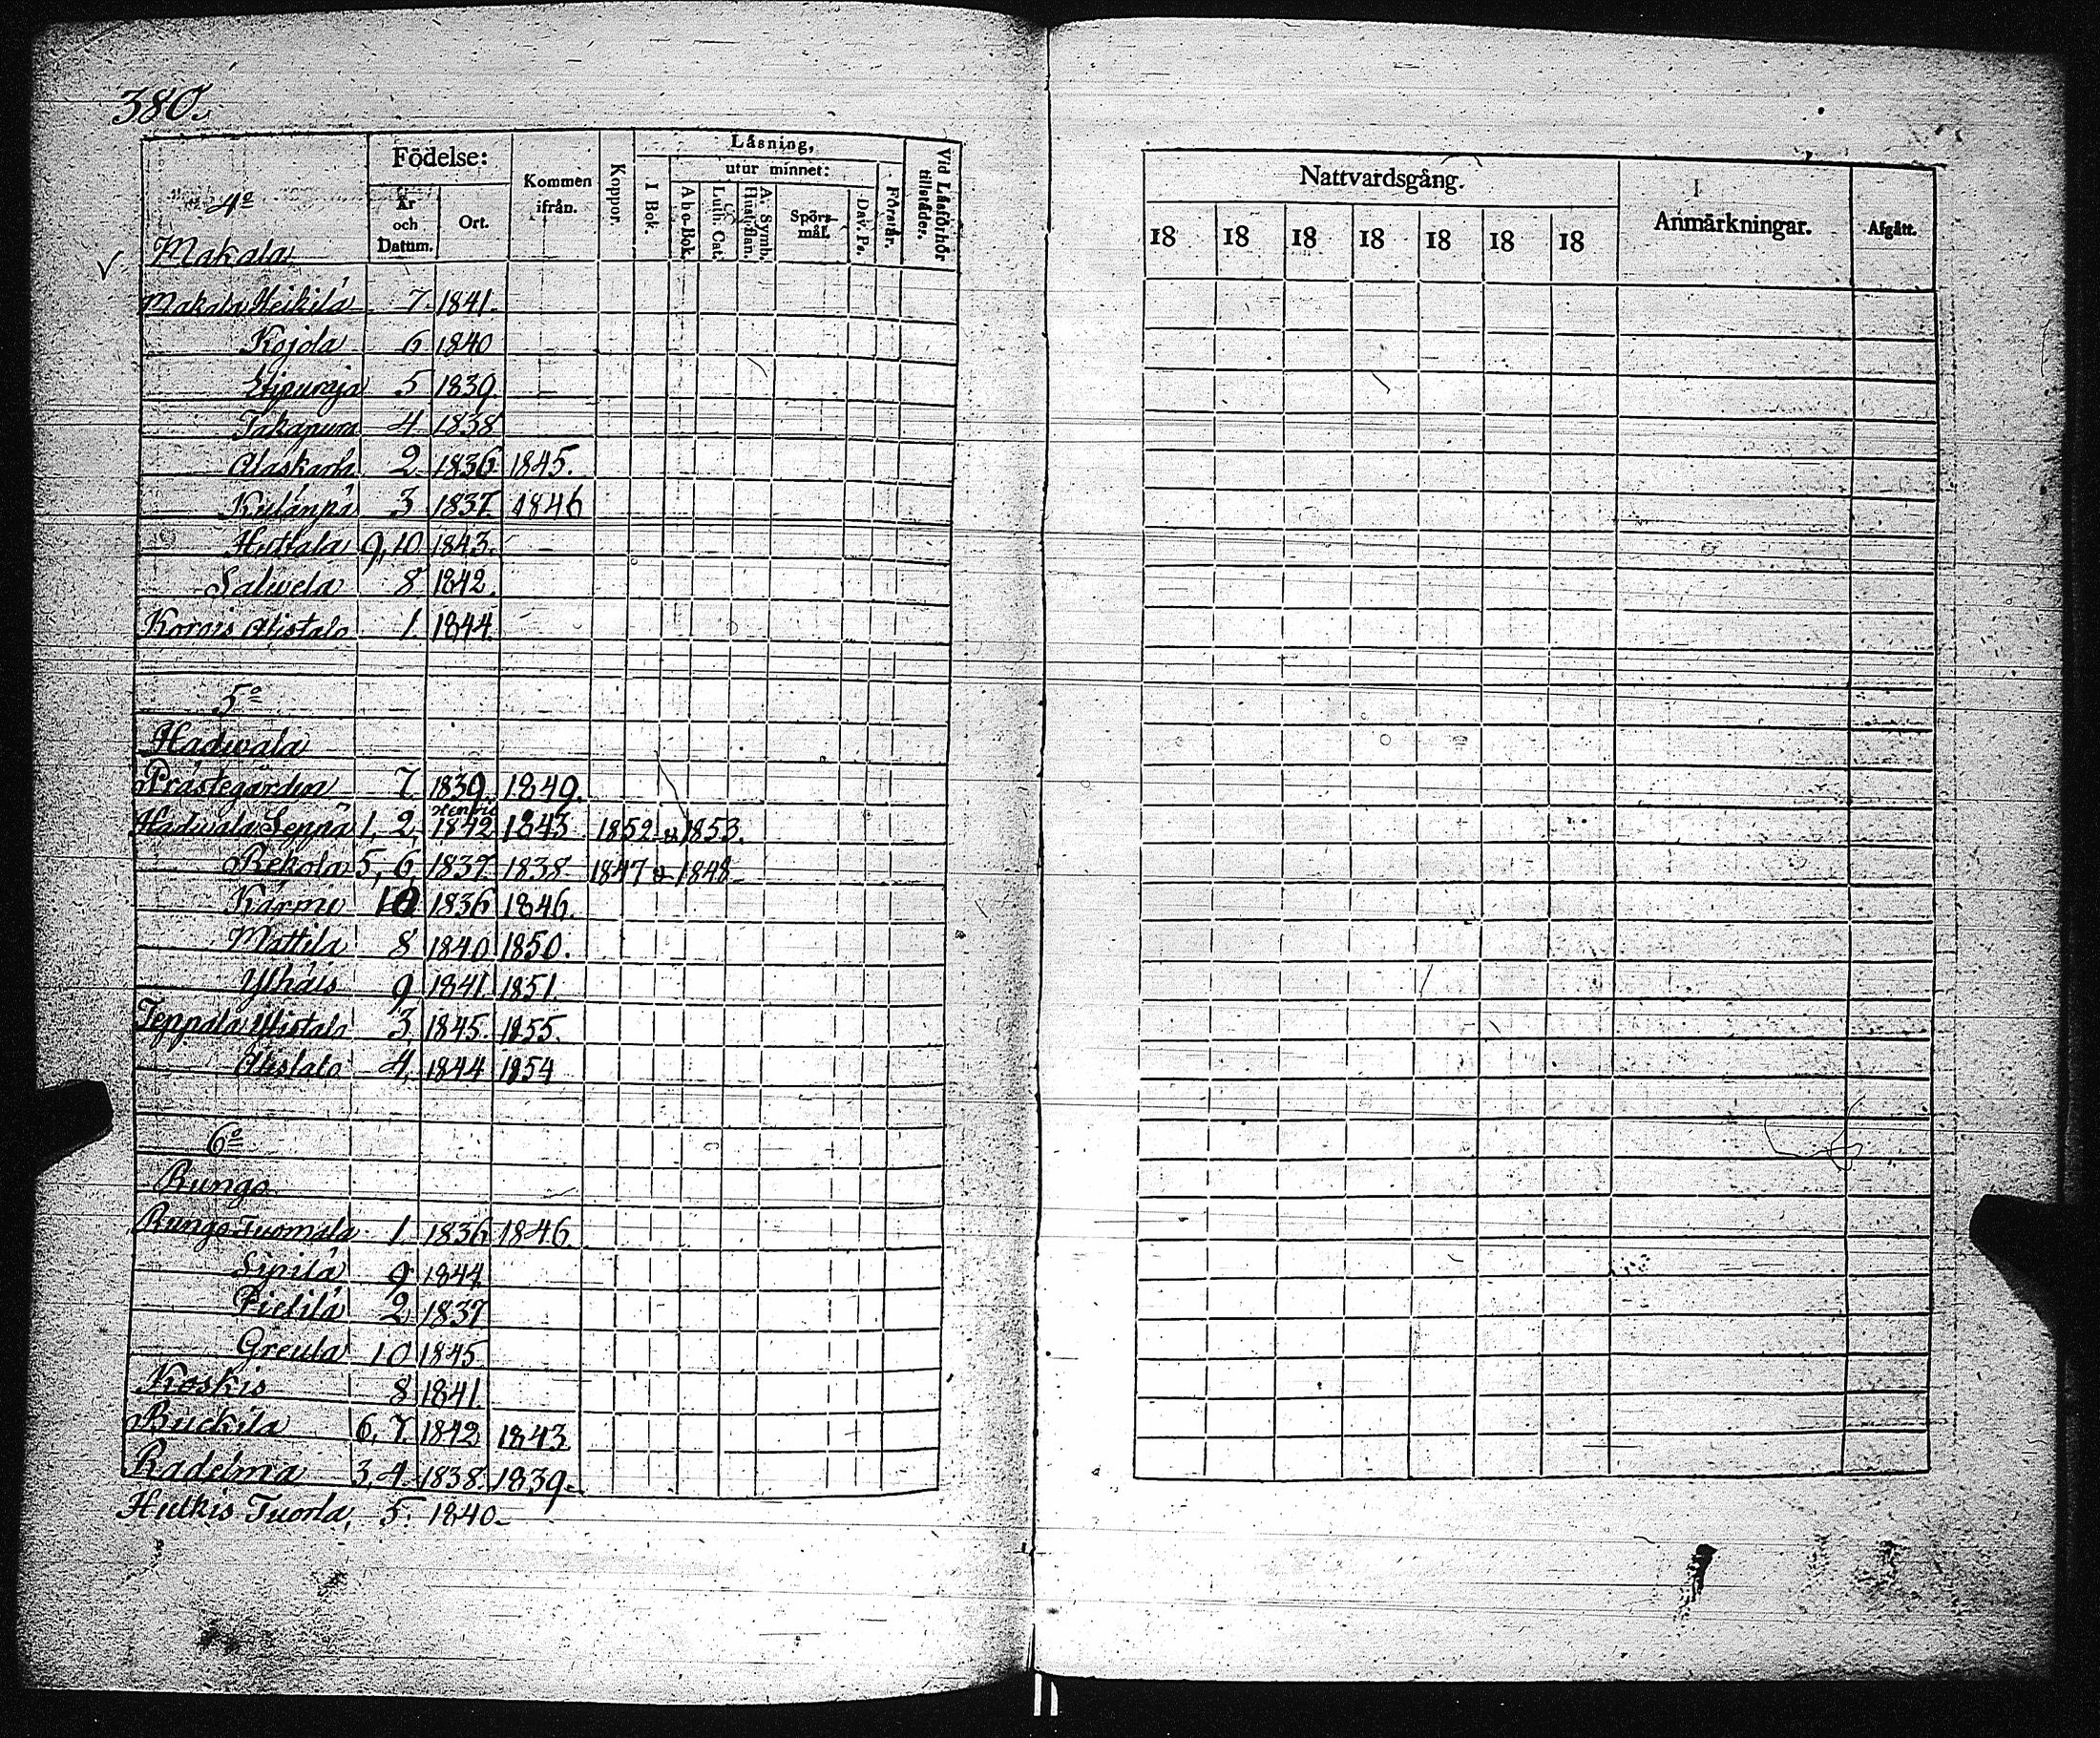 380.
Födelse:
År och Datum.
Ort.
Kommen ifrån.
Koppor.
Läsning,
I Bok.
utur minnet:
Abc-Bok.
Luth. Cat.
A. Symb. Hustaflan.
Spörsmål.
Dav. Ps.
Förstår.
Vid Läsförhör tillstädes.
Nattvardsgång.
18 18 18 18 18 18 18
Anmärkningar.
Afgått.
4o
Makala
Makala Heikilä 7. 1841.
Kojola 6 1840
5 1839.
4. 1838
Alaskarta 2. 1836 1845.
3 1837. 1846
Huttala 9, 10. 1843.
Saliwela 8 1842.
Korois Alistalo 1. 1844.
5o
Hadwala
Prästegården 7. 1839. 1849.
Hadwala Seppä 1, 2, 1842 1843 1852 & 1853.
Rekola 5, 6, 1837 1838 1847 & 1848
Kärmi 10 1836 1846.
Mattila 8 1840 1850.
Ylhäis 9, 1841. 1851.
Teppala Ylistalo 3, 1845. 1855.
Alistalo 4, 1844 1854
6o
Rungo
Rungo Tuomala 1. 1836 1846.
Sipilä 9 1844.
Pietilä 2, 1837
Greula 10 1845.
Koskis 8 1841.
Ruckila 6, 7. 1842 1843
Radelma 3, 4. 1838. 1839.
Huikis Tuorla, 5. 1840.